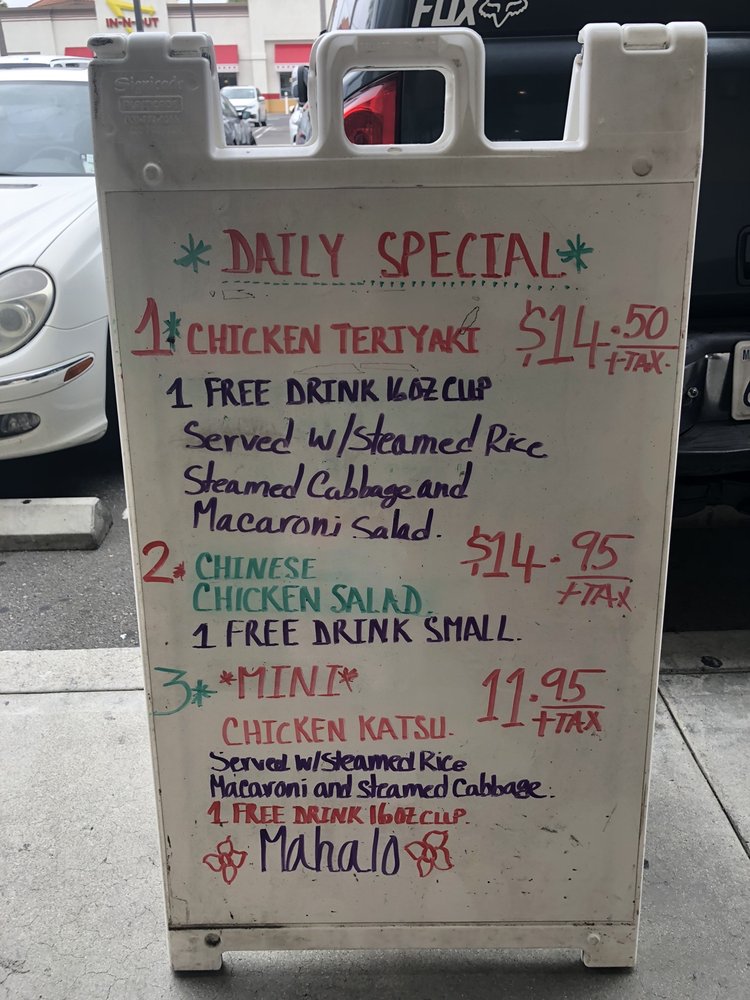 IN-N-OUT
FOX
Signicade
* DAILY SPECIAL *
1* CHICKEN TERIYAKI $14.50
+TAX.
1 FREE DRINK 16OZ CUP
Served w/Steamed Rice
Steamed Cabbage and
Macaroni Salad.
2* CHINESE $14.95
CHICKEN SALAD. +TAX
1 FREE DRINK SMALL.
3* *MINI* 11.95
+TAX
CHICKEN KATSU.
Served w/Steamed Rice
Macaroni and Steamed Cabbage.
1 FREE DRINK 16OZ CUP
Mahalo